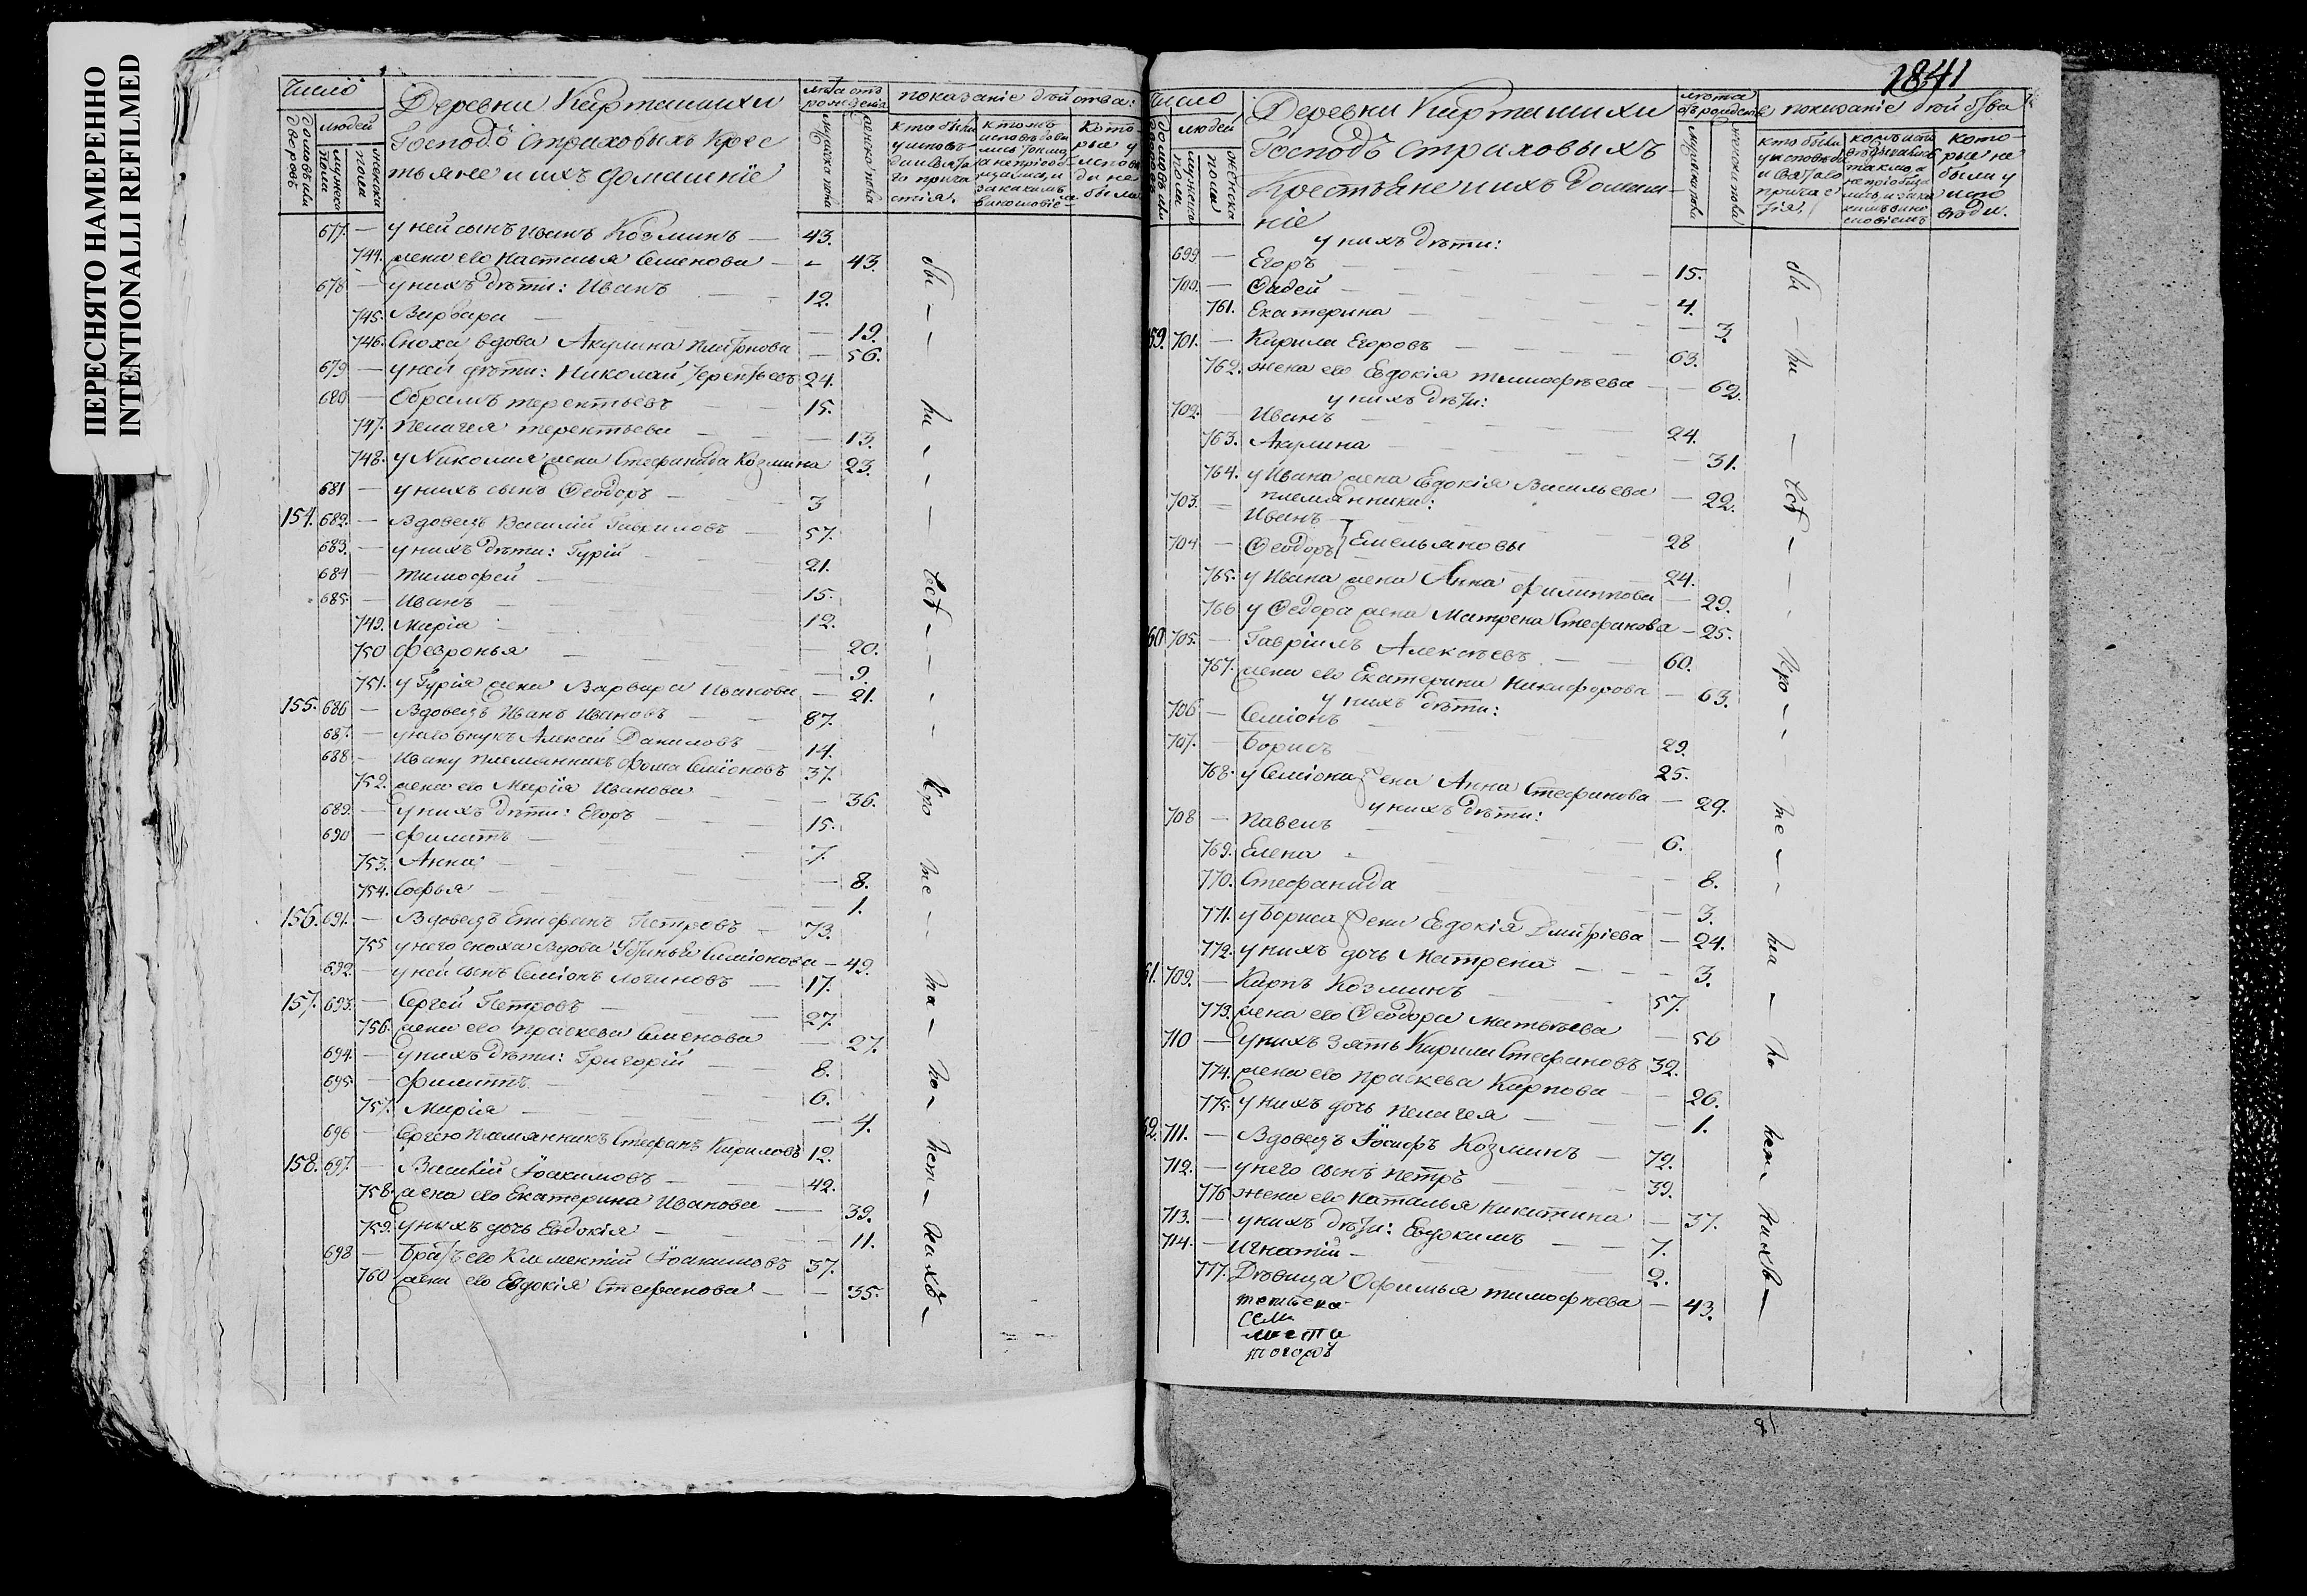 ПЕРЕСНЯТО НАМЕРЕННО
INTENTIONALLI REFILMED
Число
домовъ или дворовъ
людей
мужеска пола
женска пола
Деревни Карташихи
Господъ Страховыхъ Крес
тьяне и ихъ домашніе
лѣта отъ рожденія
мужеска пола
женска пола
показаніе дѣйства:
677. — у ней сынъ Иванъ Козминъ — 43.
744. жена его Настасья Семенова — 43.
678 — у нихъ дѣти: Иванъ 12.
745. Варвара — 19.
746. Сноха вдова Акулина Платонова — 56.
679 — у ней дѣти: Николай Терентьевъ 24.
680 — Обрамъ Терентьевъ 15.
747. Пелагея Терентьева — 13.
748. у Николая жена Стефанида Козмина 23.
681 — у нихъ сынъ Феодоръ 3
154. 682. — Вдовецъ Василій Гавриловъ 57.
683. — у нихъ дѣти: Гурій 21.
684 — Тимофей 15.
685. — Иванъ 12.
749. Марія 20.
750 Февронья — 9.
751. у Гурія жена Варвара Иванова — 21.
155. 686 — Вдовецъ Иванъ Ивановъ 87.
687. — у него внукъ Алексей Даниловъ 14.
688 — Ивану племянникъ Фома Семіоновъ 37.
752. жена его Марія Иванова — 36.
689. — у нихъ дѣти: Егоръ 15.
690 — Филиппъ 7.
753. Анна — 8.
754. Софья — 1.
156. 691. — Вдовецъ Епифанъ Петровъ 73.
755 у него сноха вдова Устинья Семіонова — 49.
692. — у ней сынъ Семіонъ Логиновъ 17.
157. 693. — Сергей Петровъ 27.
756. жена его Праскева Семенова — 27.
694. — у нихъ дѣти: Григорій 8.
695 — Филиппъ 6.
757. Марія — 4.
696 — Сергею племянникъ Стефанъ Кириловъ 12.
158. 697. — Василій Іоакимовъ 42.
758. жена его Екатерина Иванова — 39.
759. у нихъ дочь Евдокія — 11.
698 — Братъ его Климентій Іоакимовъ 37.
760 жена его Евдокія Стефанова — 35.
1841
Число
людей
Деревни Карташихи
Господъ Страховыхъ
Крестьяне и ихъ домаш-
ніе
показаніе дѣйства
у нихъ дѣти:
699 — Егоръ 15.
700. — Фадей 4.
761. Екатерина — 3.
159. 701. — Кирила Егоровъ 63.
762. жена его Евдокія Тимофѣева — 62.
у нихъ дѣти:
702. — Иванъ 24.
763. Акулина — 31.
764. у Ивана жена Евдокія Васильева — 22.
племянники:
703. — Иванъ 28
704 — Феодоръ } Емельяновы 24.
765. у Ивана жена Анна Филиппова — 29.
766 у Феодора жена Матрена Стефанова — 25.
160 705. — Гавріилъ Алексѣевъ 60.
767. жена его Екатерина Никифорова — 63.
у нихъ дѣти:
706 — Семіонъ 29.
707. — Борисъ 25.
768. у Семіона жена Анна Стефанова — 29.
у нихъ дѣти:
708 — Павелъ 6.
769. Елена — 8.
770. Стефанида — 3.
771. у Бориса жена Евдокія Дмитріева — 24.
772. у нихъ дочь Матрена — 3.
161. 709. — Карпъ Козминъ 57.
773. жена его Феодора Матвѣева — 50
710 — у нихъ зять Кирила Стефановъ 32.
774. жена его Праскева Карпова — 26.
775. у нихъ дочь Пелагея — 1.
162. 711. — Вдовецъ Іосифъ Козминъ — 72.
712. — у него сынъ Петръ 39.
776 жена его Наталья Никитина — 37.
713. — у нихъ дѣти: Евдокимъ 7.
714. — Игнатій 2.
777. Дѣвица Офимья Тимофѣева — 43.